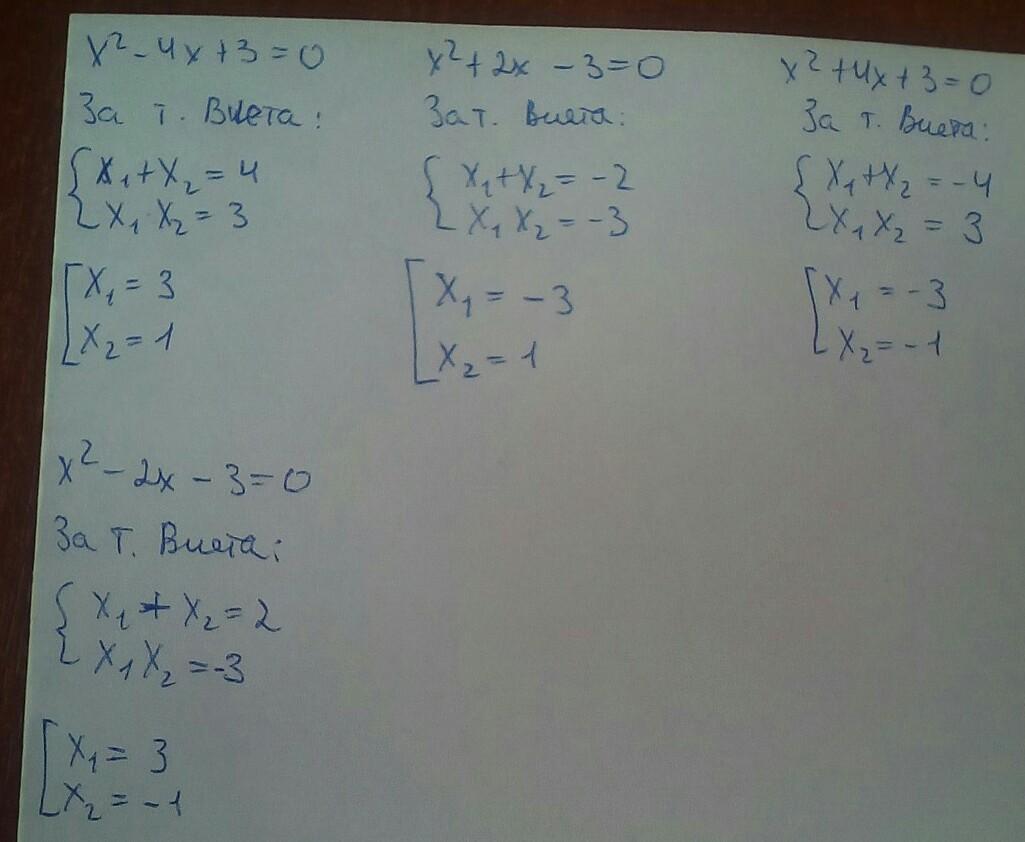 x² - 4x + 3 = 0
За т. Виета:
{ x₁ + x₂ = 4
x₁ x₂ = 3
[ x₁ = 3
x₂ = 1
x² + 2x - 3 = 0
За т. Виета:
{ x₁ + x₂ = -2
x₁ x₂ = -3
[ x₁ = -3
x₂ = 1
x² + 4x + 3 = 0
За т. Виета:
{ x₁ + x₂ = -4
x₁ x₂ = 3
[ x₁ = -3
x₂ = -1
x² - 2x - 3 = 0
За т. Виета:
{ x₁ + x₂ = 2
x₁ x₂ = -3
[ x₁ = 3
x₂ = -1